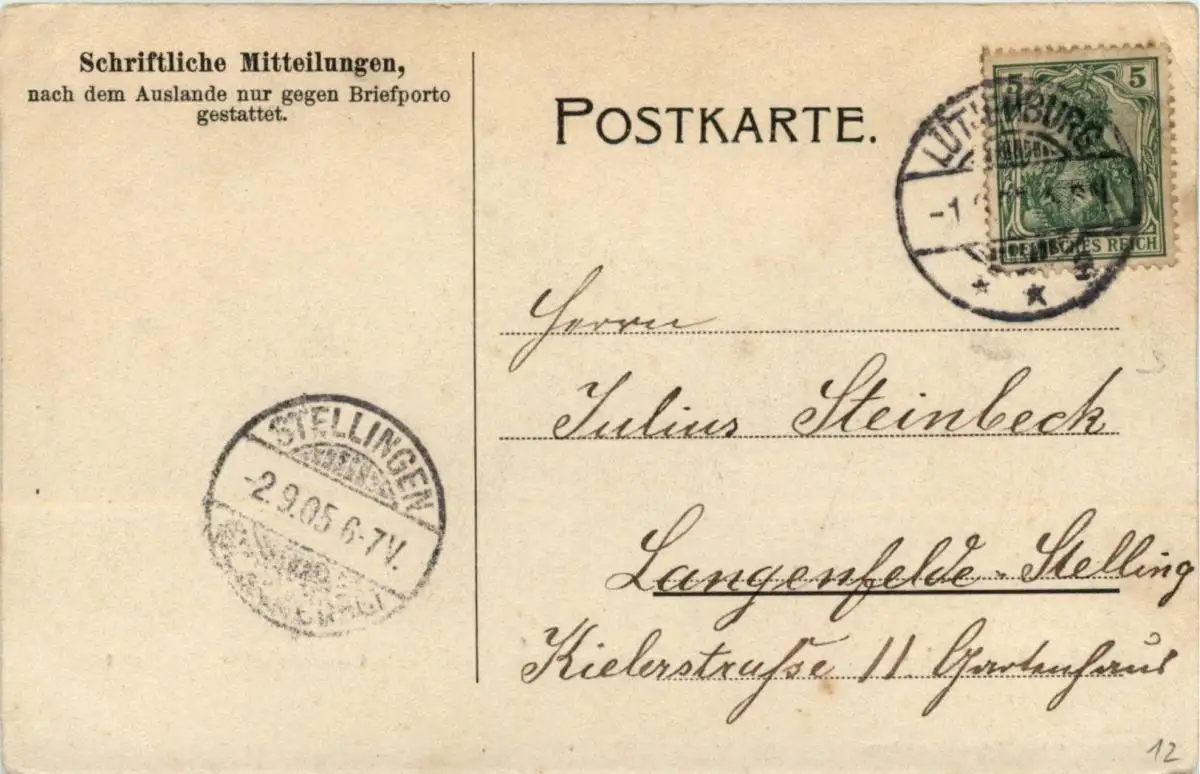 Schriftliche Mitteilungen,
nach dem Auslande nur gegen Briefporto
gestattet.
POSTKARTE.
5 5
DEUTSCHES REICH
LÜTJENBURG
-1.
* *
Herrn
Julius Steinbeck
Langenfelde-Stelling
Kielerstraße 11 Gartenhaus
STELLINGEN
-2.9.05 6-7V.
12